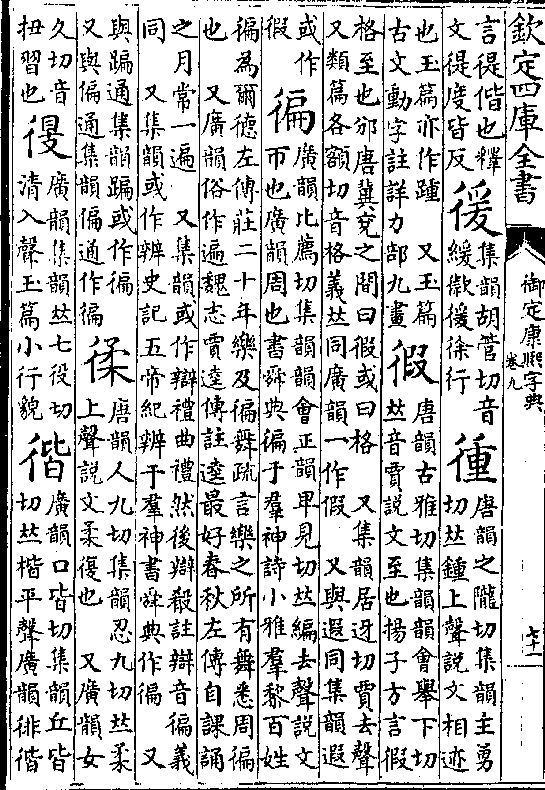 欽定四庫全書
御定康熙字典
卷九
七十一
言徥偕也釋
文徥度皆反
㣪
集韻胡管切音
緩㣪㣪徐行
𢔏
唐韻之隴切集韻主勇
切𠀤鍾上聲說文相迹
也玉篇亦作踵 又玉篇
古文動字註詳力部九畫
徦
唐韻古雅切集韻韻會舉下切
𠀤音賈說文至也揚子方言徦
格至也邠唐冀兗之間曰徦或曰格 又集韻居迓切賈去聲
又類篇各額切音格義𠀤同廣韻一作假 又與遐同集韻遐
或作
徦
徧
廣韻比薦切集韻韻會正韻卑見切𠀤編去聲說文
帀也廣韻周也書舜典徧于羣神詩小雅羣黎百姓
徧為爾德左傳莊二十年樂及徧舞疏言樂之所有舞悉周徧
也 又廣韻俗作遍魏志賈逵傳註逵最好春秋左傳自課誦
之月常一遍 又集韻或作辯禮曲禮然後辯殽註辯音徧義
同 又集韻或作辨史記五帝紀辨于羣神書舜典作徧 又
與蹁通集韻蹁或作徧
又與偏通集韻偏通作徧
㣽
唐韻人九切集韻忍九切𠀤柔
上聲說文柔復也 又廣韻女
久切音
扭習也
㣲
廣韻集韻𠀤七役切
清入聲玉篇小行貌
𢔡
廣韻口皆切集韻丘皆
切𠀤楷平聲廣韻徘𢔡